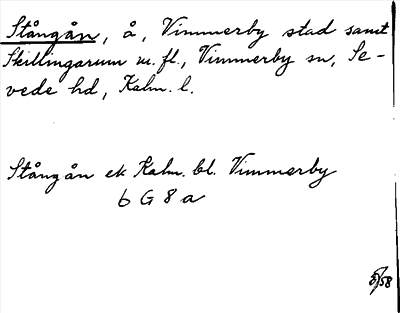 Stångån, å, Vimmerby stad samt
Skillingarum m. fl., Vimmerby sn, Se-
vede hd, Kalm. l.
Stångån ek Kalm. bl. Vimmerby
6 G 8 a
5/58